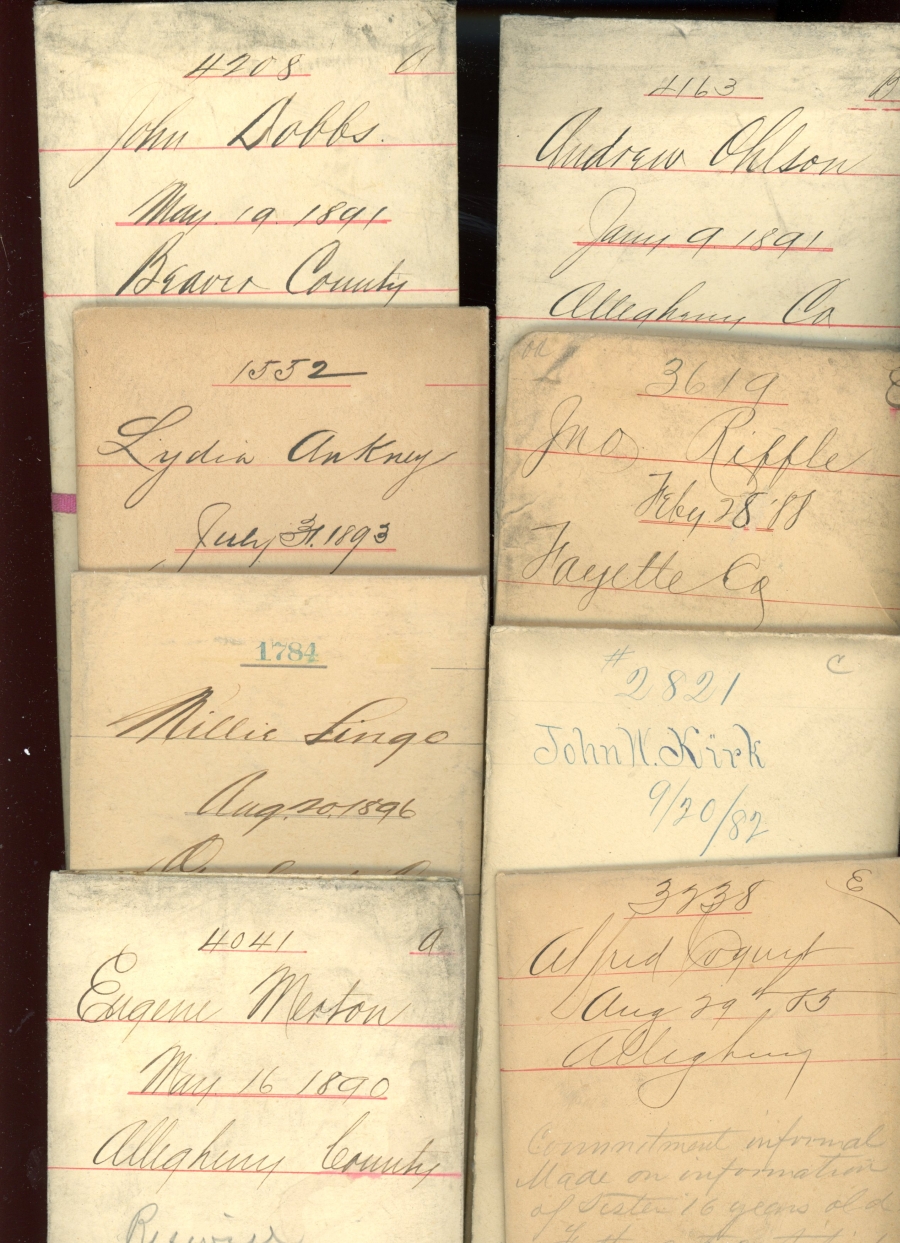 4208 a
John Dobbs.
May. 19. 1891
Beaver County
1552
Lydia Ankney
July 31. 1893
1784
Millie Lingo
Aug. 20. 1896
4041 a
Eugene Merton
May. 16 1890
Allegheny County
4163 B
Andrew Ohlson
Jany 9 1891
Allegheny Co
3619 E
Jno Riffle
Feby 28 '88
Fayette Co
#2821 C
John W. Kirk
9/20/82
3238 E
Alfred
Aug 29th 85
Allegheny
Commitment informal
Made on information
of Sister 16 years old